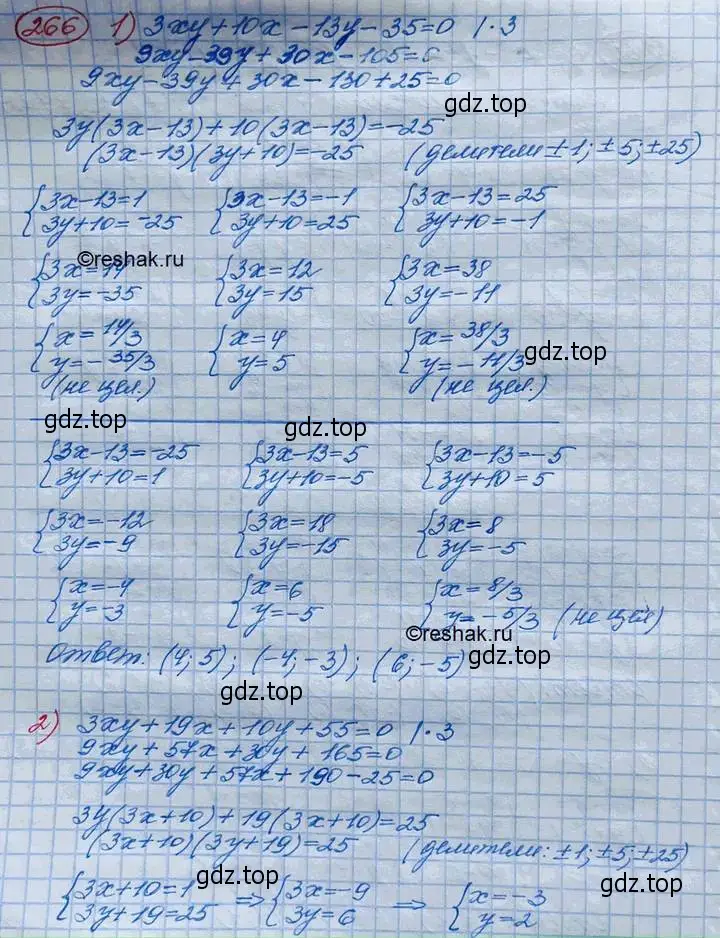 266 1) 3xy+10x-13y-35=0 |·3
9xy-39y+30x-105=0
9xy-39y+30x-130+25=0
gdz.top
3y(3x-13)+10(3x-13)=-25
(3x-13)(3y+10)=-25 (делители ±1; ±5; ±25)
{3x-13=1 {3x-13=-1 {3x-13=25
{3y+10=-25 {3y+10=25 {3y+10=-1
©reshak.ru
{3x=14 {3x=12 {3x=38
{3y=-35 {3y=15 {3y=-11
{x=14/3 {x=4 {x=38/3
{y=-35/3 {y=5 {y=-11/3 gdz.top
(не цел.) (не цел.)
gdz.top gdz.top
{3x-13=-25 {3x-13=5 {3x-13=-5
{3y+10=1 {3y+10=-5 {3y+10=5
gdz.top
{3x=-12 {3x=18 {3x=8
{3y=-9 {3y=-15 {3y=-5
{x=-4 {x=6 {x=8/3
{y=-3 {y=-5 {y=-5/3 (не цел)
©reshak.ru
Ответ: (4; 5); (-4; -3); (6; -5) gdz.top
gdz.top
2) 3xy+19x+10y+55=0 |·3
9xy+57x+30y+165=0
9xy+30y+57x+190-25=0
3y(3x+10)+19(3x+10)=25
(3x+10)(3y+19)=25 (делители: ±1; ±5; ±25)
gdz.top gdz.top
{3x+10=1 ⇒ {3x=-9 ⇒ {x=-3
{3y+19=25 {3y=6 {y=2